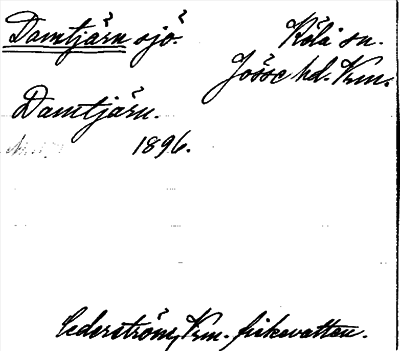 Damtjärn sjö. Köla sn.
Jösse hd. Vrm.
Damtjärn.
1896.
Cederström, Vrm. fiskevatten.